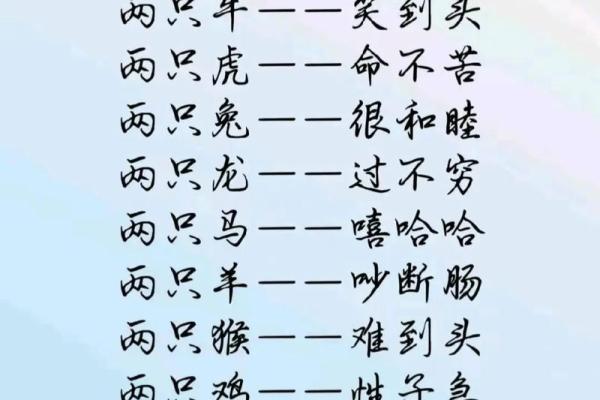 两只牛——笑到头
两只虎——命不苦
两只兔——很和睦
两只龙——过不穷
两只马——嘻哈哈
两只羊——吵断肠
两只猴——难到头
两只鸡——性子急